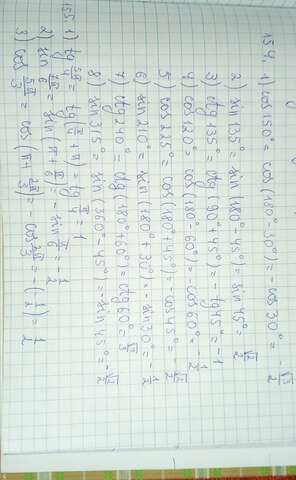 154. 1) cos 150° = cos (180° - 30°) = - cos 30° = - √3/2
2) sin 135° = sin (180° - 45°) = sin 45° = √2/2
3) ctg 135° = ctg (90° + 45°) = - tg 45° = -1
4) cos 120° = cos (180° - 60°) = - cos 60° = - 1/2
5) cos 225° = cos (180° + 45°) = - cos 45° = - √2/2
6) sin 210° = sin (180° + 30°) = - sin 30° = - 1/2
7) ctg 240° = ctg (180° + 60°) = ctg 60° = √3/3
8) sin 315° = sin (360° - 45°) = - sin 45° = - √2/2
155. 1) tg 5π/4 = tg (π/4 + π) = tg π/4 = 1
2) sin 7π/6 = sin (π + π/6) = - sin π/6 = - 1/2
3) cos 5π/3 = cos (π + 2π/3) = - cos 2π/3 = - (- 1/2) = 1/2